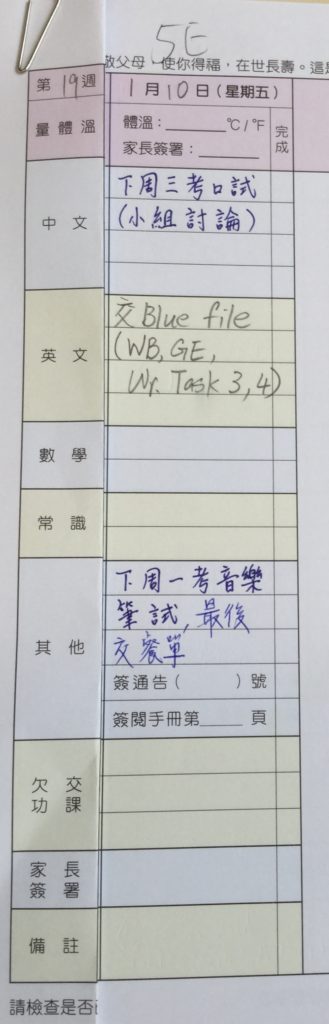 5E
敬父母，使你得福，在世長壽。這是
第19週
1月10日(星期五)
量體溫
體溫：______ °C/°F
家長簽署：______
完成
中文
下周三考口試
(小組討論)
英文
交Blue file
(WB, GE,
Wr. Task 3, 4)
數學
常識
其他
下周一考音樂
筆試, 最後
交餐單
簽通告( )號
簽閱手冊第_____頁
欠交
功課
家長
簽署
備註
請檢查是否